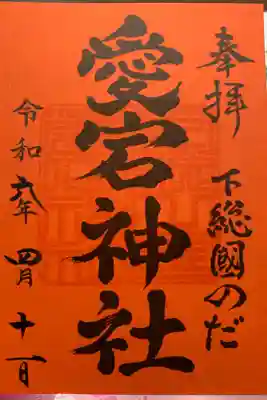 奉拝
下総國のだ
愛宕神社
令和六年
四月十一日